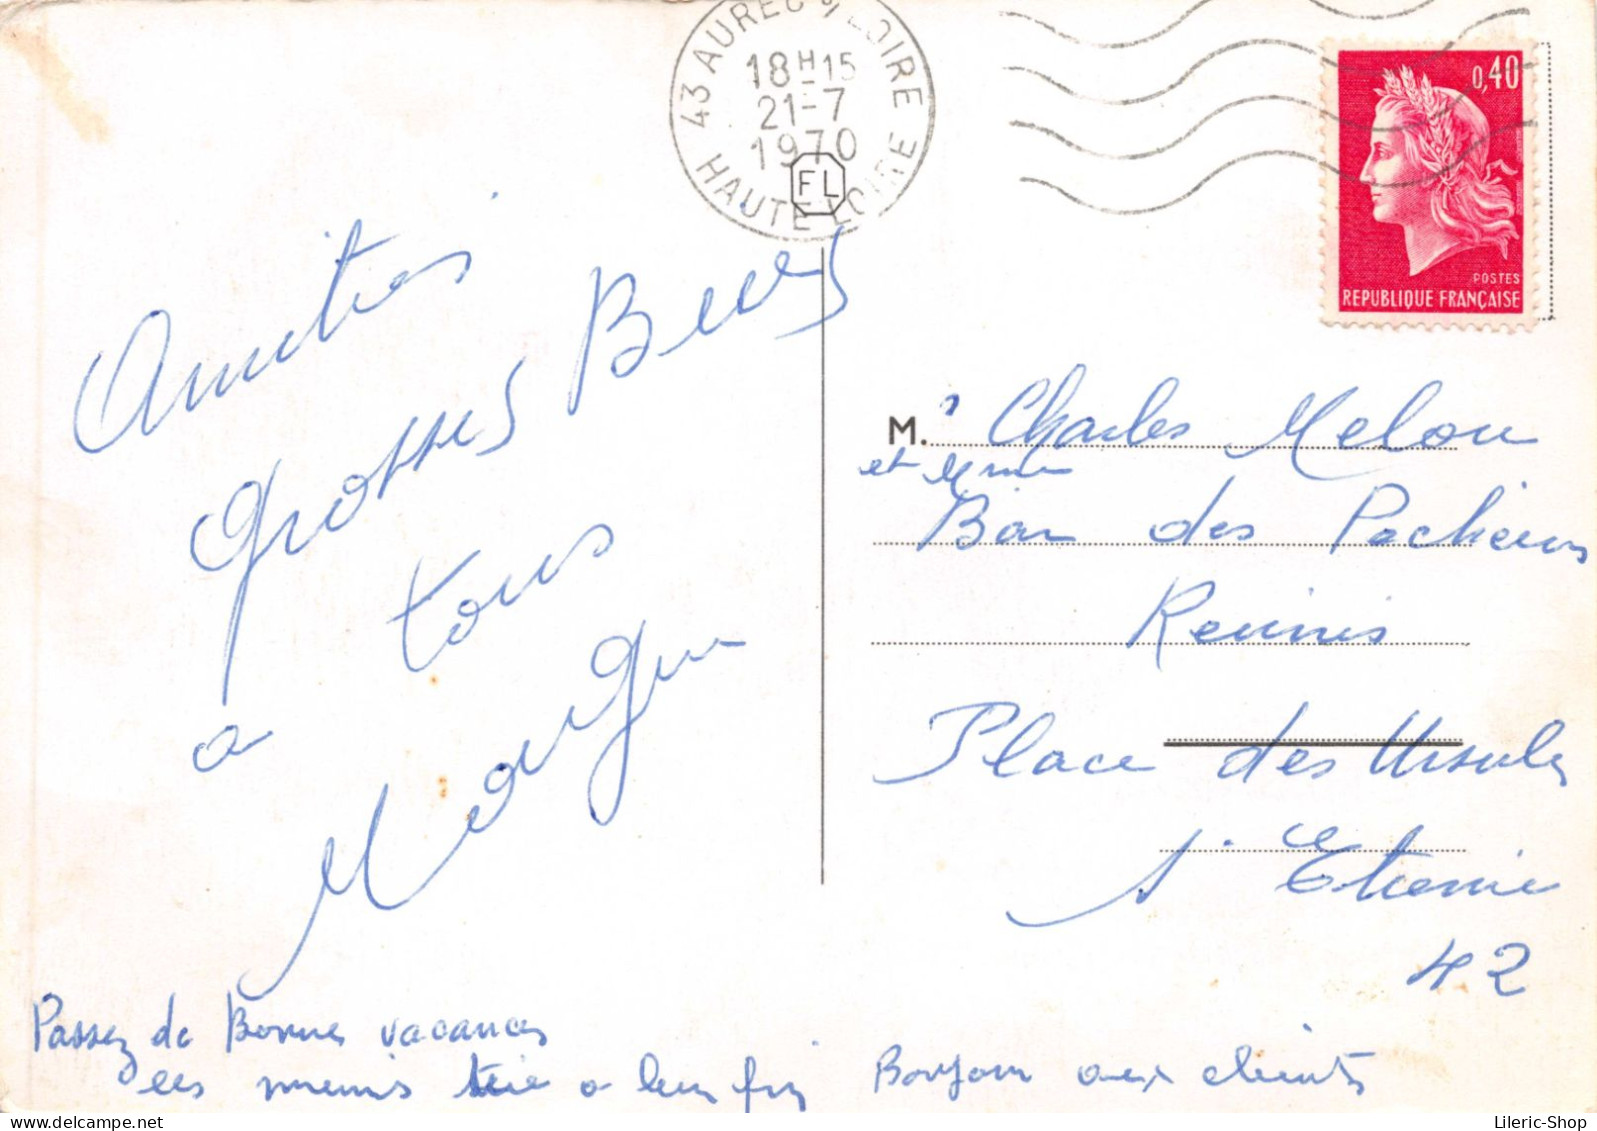 43 AUREC S/ LOIRE
18H15
21-7
1970
HAUTE LOIRE
FL
0,40
POSTES
REPUBLIQUE FRANÇAISE
Amitiés
Grosses Bises
a tous
M. Charles Melou
et Mme
Bar des Pecheurs
Reunis
Place des Ursules
St Etienne
42
Passez de Bonnes vacances
les miens a leur fin
Bonjour aux clients
Lileric-Shop